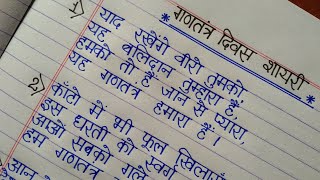 * गणतंत्र दिवस शायरी *
1) याद रखेंगे वीरो तुमको
यह बलिदान तुम्हारा है,
हमको तो है जान से प्यारा,
यह गणतंत्र हमारा है।
2) काँटो में भी फूल खिलाएँ
इस धरती को स्वर्ग
आओ सबको गले
हम गणतंत्र